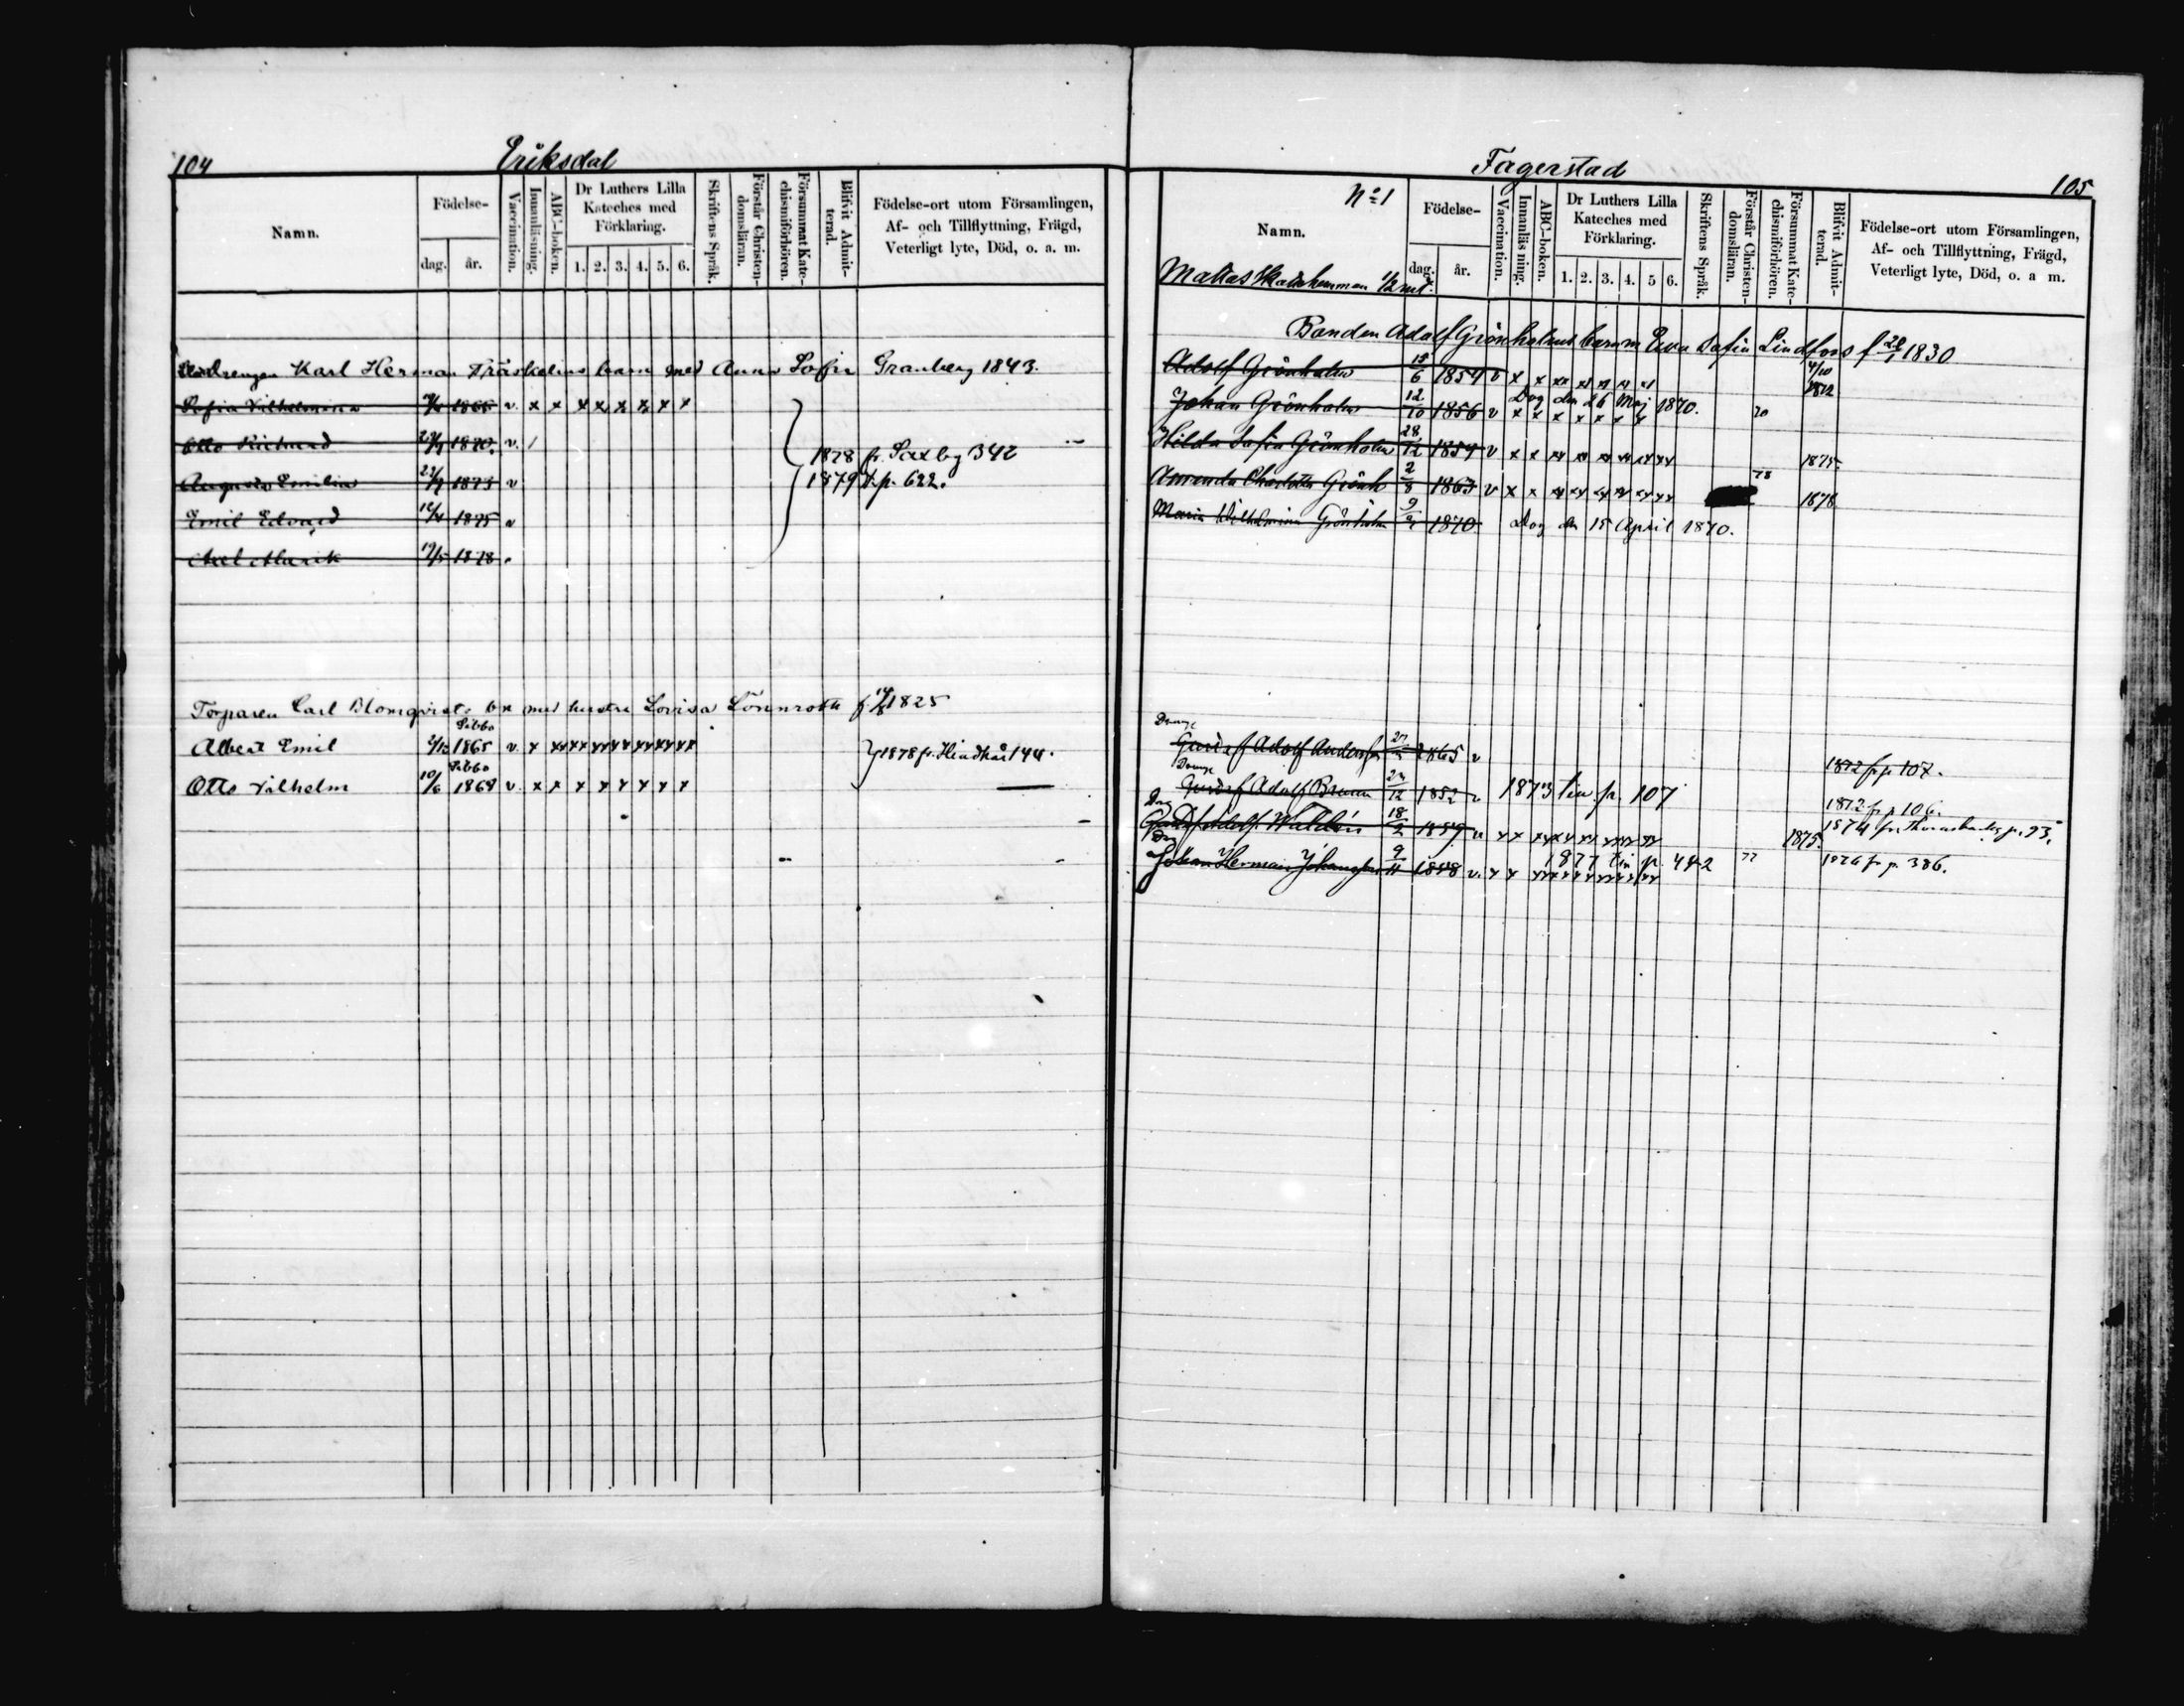 104
Eriksdal
Namn.
Födelse-
dag.
år.
Vaccination.
Innanläsning.
ABC-boken.
Dr Luthers Lilla
Kateches med
Förklaring.
1. 2. 3. 4. 5. 6.
Skriftens Språk.
Förstår Christen-
domsläran.
Försummat Kate-
chismiförhören.
Blifvit Admit-
terad.
Födelse-ort utom Församlingen,
Af- och Tillflyttning, Frägd,
Veterligt lyte, Död, o. a. m.
Karl Herman Fräskelius barn med Anna Sofia Granberg 1843.
Sofia Vilhelmina 1865 v. x x x x x x x x
Otto Richard 1870. v. /
1878 fr. Saxby 342
Augusta Emilia 1873 v
1879 t. p. 622.
Emil Edvard 1875 v
Axel Alarik 1878
Torparen Carl Blomqvists bn med hustru Lovisa Lönnroth f. 1825
Sibbo
Albert Emil 1865 v. x xx xx xx xx xx xx xx
1878 fr. Hindhår 144.
Sibbo
Otto Vilhelm 10/6 1868 v. x x x x x x x x
Fagerstad
105
No 1
Namn.
Mattas Skattehemman 1/2 mt.
Födelse-
dag.
år.
Vaccination.
Innanläsning.
ABC-boken.
Dr Luthers Lilla
Kateches med
Förklaring.
1. 2. 3. 4. 5 6.
Skriftens Språk.
Förstår Christen-
domsläran.
Försummat Kate-
chismiförhören.
Blifvit Admit-
terad.
Födelse-ort utom Församlingen,
Af- och Tillflyttning, Frägd,
Veterligt lyte, Död, o. a m.
Bonden Adolf Grönholms barn m Eva Sofia Lindfors f 1830
Adolf Grönholm 15/6 1854 v x x xx xx xx xx xx 4/10 1872
Dog den 26 Maj 1870.
Johan Grönholm 12/10 1856 v x x x x x x x 70
Hilda Sofia Grönholm 28/12 1859 v x x xx xx xx xx xx 1875.
Amanda Charlotta Grönh 2/8 1863 v x x xx xx xx xx xx xx 78 1878
Maria Wilhelmina Grönholm 1870 Dog den 15 April 1870.
Drenge
Gustaf Adolf Andersson 1865 v
1872 fr p 107.
Drenge
Gustaf Adolf Bruun 1852 v 1873 till p. 107
1872 fr p 106.
Drg
Gustaf Adolf Waldén 18/2 1859 v x x xx xx xx xx xx 1875. 1874 fr. Thomasbacka p. 93.
Drg
1877 till p. 442
Johan Herman Johansson 9/11 1858 v. x x xx xx xx xx xx xx 77 1876 fr p. 386.